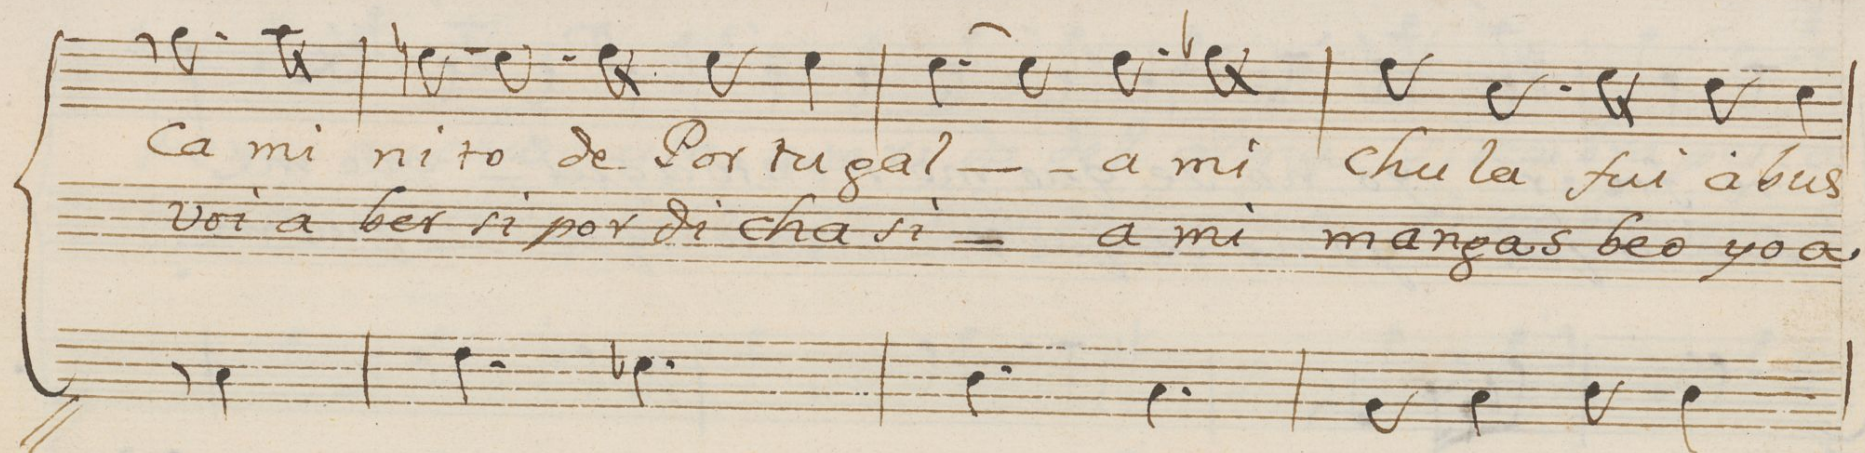 Ca mi ni to de Por tu gal — - a mi chu la fui á bus
voi a ber si por di cha si = a mi mangas beo yo a